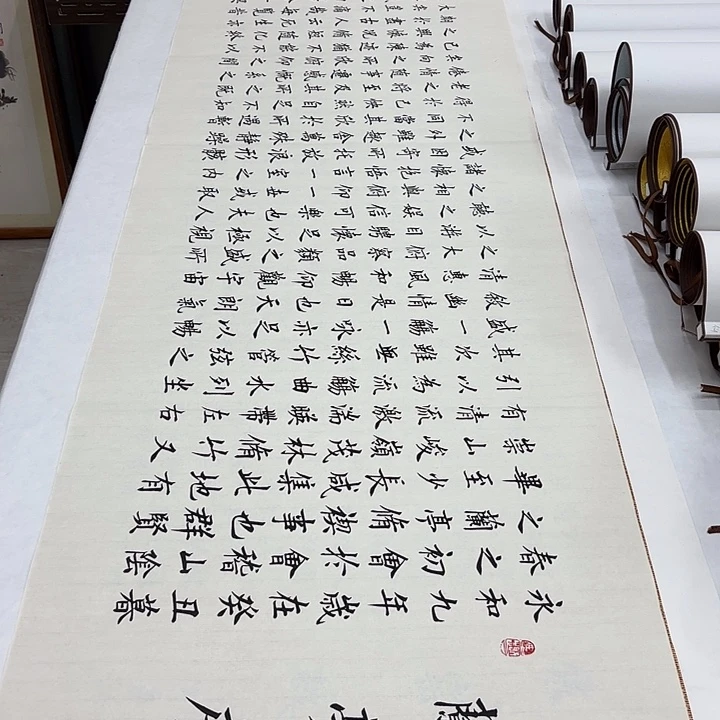 永和九年歲在癸丑暮
春之初會於會稽山陰
之蘭亭脩禊事也群賢
畢至少長咸集此地有
崇山峻嶺茂林脩竹又
有清流激湍暎帶左右
引以為流觴曲水列坐
其次雖無絲竹管弦之
盛一觴一詠亦足以暢
敘幽情是日也天朗氣
清惠風和暢仰觀宇宙
之大俯察品類之盛所
以遊目騁懷足以極視
聽之娛信可樂也夫人
之相與俯仰一世或取
諸懷抱悟言一室之內
或因寄所託放浪形骸
之外雖趣舍萬殊靜躁
不同當其欣於所遇暫
得於己快然自足不知
老之將至及其所之既
倦情隨事遷感慨係之
矣向之所欣俛仰之間
已為陳跡猶不能不以
之興懷況脩短隨化終
期於盡古人云死生亦